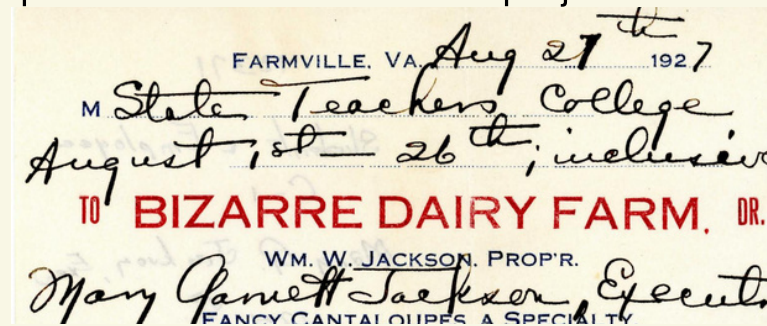 FARMVILLE, VA. Aug 27th 1927
M State Teachers College
August 1st — 26th; inclusive
TO BIZARRE DAIRY FARM. DR.
WM. W. JACKSON. PROP'R.
Mary Garnett Jackson, Execut
FANCY CANTALOUPES A SPECIALTY